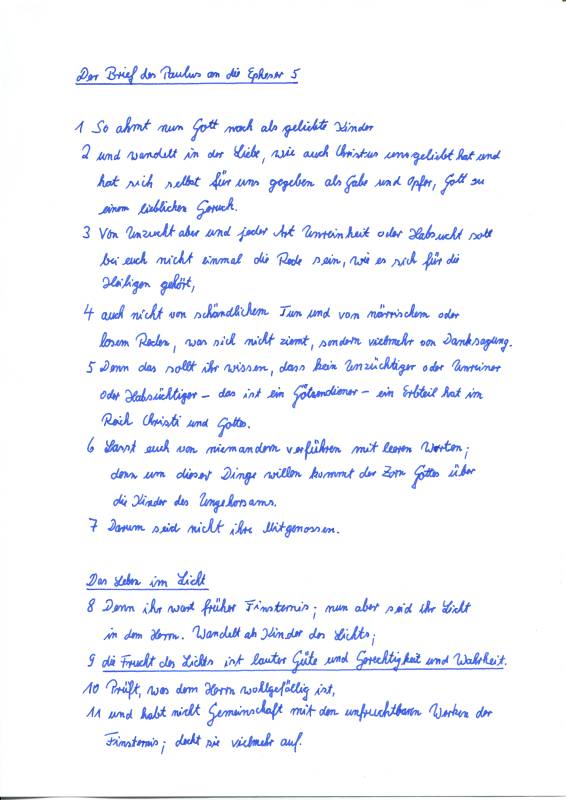 Der Brief des Paulus an die Epheser 5
1 So ahmt nun Gott nach als geliebte Kinder
2 und wandelt in der Liebe, wie auch Christus uns geliebt hat und
hat sich selbst für uns gegeben als Gabe und Opfer, Gott zu
einem lieblichen Geruch.
3 Von Unzucht aber und jeder Art Unreinheit oder Habsucht soll
bei euch nicht einmal die Rede sein, wie es sich für die
Heiligen gehört,
4 auch nicht von schändlichem Tun und von närrischem oder
losem Reden, was sich nicht ziemt, sondern vielmehr von Danksagung.
5 Denn das sollt ihr wissen, dass kein Unzüchtiger oder Unreiner
oder Habsüchtiger – das ist ein Götzendiener – ein Erbteil hat im
Reich Christi und Gottes.
6 Lasst euch von niemandem verführen mit leeren Worten;
denn um dieser Dinge willen kommt der Zorn Gottes über
die Kinder des Ungehorsams.
7 Darum seid nicht ihre Mitgenossen.
Das Leben im Licht
8 Denn ihr wart früher Finsternis; nun aber seid ihr Licht
in dem Herrn. Wandelt als Kinder des Lichts;
9 die Frucht des Lichts ist lauter Güte und Gerechtigkeit und Wahrheit.
10 Prüft, was dem Herrn wohlgefällig ist,
11 und habt nicht Gemeinschaft mit den unfruchtbaren Werken der
Finsternis; deckt sie vielmehr auf.